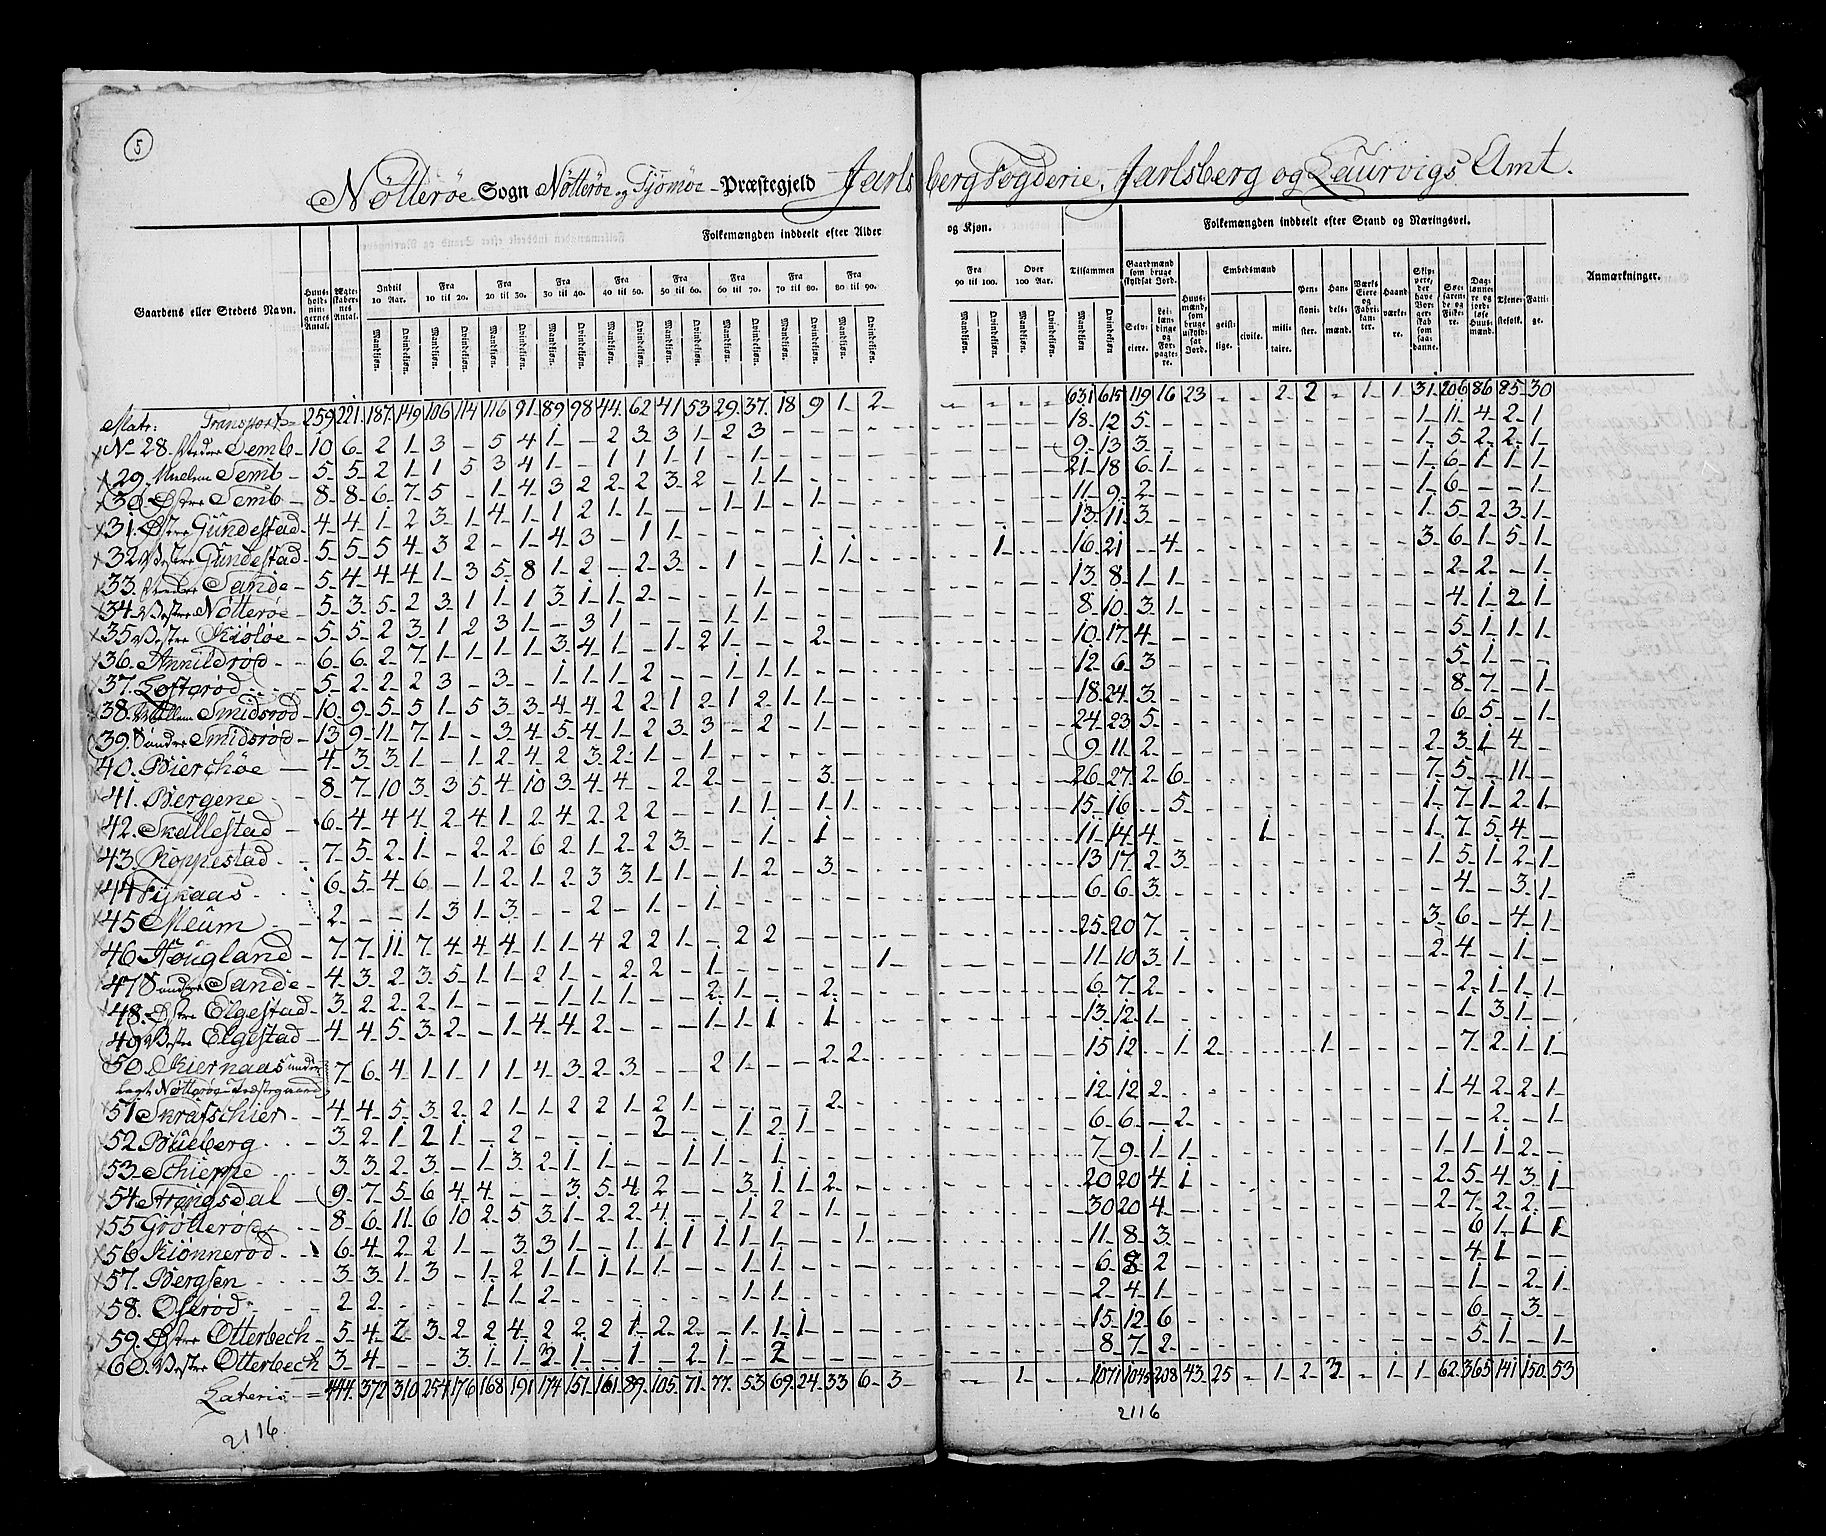 5
Nötteröe Sogn Nötteröe og Tjömöe Præstegjeld Jarlsberg Fogderie, Jarlsberg og Laurvigs Amt.
Folkemængden inddeelt efter Alder og Kjøn. Folkemængden inddeelt efter Stand og Næringsvei.
Gaardens eller Stedets Navn. Huusholdningernes Antal. Ægteskabernes Antal. Indtil 10 Aar. Fra 10 til 20. Fra 20 til 30. Fra 30 til 40. Fra 40 til 50. Fra 50 til 60. Fra 60 til 70. Fra 70 til 80. Fra 80 til 90. Fra 90 til 100. Over 100 Aar. Tilsammen Gaardmænd som bruge skyldsat Jord. Huusmænd, som bruge uskyldsat Jord. Embedsmænd Pensionister. Handelsmænd. Værks Eiere og Fabrikanter. Haandværkere. Skippere, der have Borgerskab som saadanne. Søefarende og Fiskere. Daglønnere og jordløse Huusmænd. Tjenestefolk. Fattige. Anmærkninger.
Mandkjøn. Qvindekjøn. Mandkjøn. Qvindekjøn. Mandkjøn. Qvindekjøn. Mandkjøn. Qvindekjøn. Mandkjøn. Qvindekjøn. Mandkjøn. Qvindekjøn. Mandkjøn. Qvindekjøn. Mandkjøn. Qvindekjøn. Mandkjøn. Qvindekjøn. Mandkjøn. Qvindekjøn. Mandkjøn. Qvindekjøn. Mandkjøn Qvindekjøn Selveiere. Leilændinge og Forpagtere. geistlige. civile. militaire.
Matr: Transport 259 221 187 149 106 114 116 91 89 98 44 62 41 53 29 37 18 9 1 2 - - - - 631 615 119 16 23 - - 2 2 - 1 1 31 206 86 85 30
No 28. Nedre Semb 10 6 2 1 3 - 5 4 1 - 2 3 3 1 2 3 18 12 5 1 11 4 2 1
29. Semb 5 5 2 1 1 5 3 4 1 - 1 1 1 1 - 1 9 13 3 1 5 2 2 1
30. Østre Semb 8 8 6 7 5 - 1 4 3 2 2 2 3 2 - 1 1 21 18 6 1 1 6 1 1 1
31. Østre Gundestad 4 4 1 2 3 1 4 1 1 2 1 1 - - 1 1 - 1 11 9 2 1 6 - - 1
32. Vestre Gundestad 5 5 5 4 3 2 - 1 4 3 - 1 1 13 11 3 1 5 2 3 1
33. Nedre Sande 5 4 4 4 1 3 5 8 1 2 - 2 3 - 1 - - 1 1 1 16 21 - 4 3 6 1 5 1
34. Vestre Nötteröe 5 3 5 2 3 1 1 1 3 1 1 2 - - - 1 13 8 1 1 2 2 - 1
35. Vestre Kiölöe 5 5 2 3 1 2 3 1 - 3 1 - - - 1 1 8 10 3 1 4 1 2 1
36. Annildröd 6 6 2 7 1 1 1 1 3 4 1 - 1 2 1 - - 2 10 17 4 5 1 1 1
37. Loftsröd 5 2 2 2 3 - 3 - 1 1 1 2 - - 1 1 1 12 6 3 5 1 - -
38. Smidsröd 10 9 5 5 1 5 3 3 4 4 2 2 1 2 1 2 1 1 18 24 3 8 7 - 1
39. Søndre Smidsröd 13 9 11 7 1 - 3 4 5 4 1 2 3 3 - 2 - 1 24 23 5 6 5 - 1
40. Bierchöe 4 3 3 1 - 1 2 4 2 3 2 1 - 1 9 11 2 2 3 1 4 -
41. Bergene 8 7 10 3 3 5 4 10 3 4 4 - 2 2 - - - 3 26 27 2 6 7 5 - 11 -
42. Skallestad 6 4 4 4 2 4 1 2 4 2 2 2 - - 1 1 - 1 1 15 16 - 5 1 7 1 2 1
43. Roppestad 7 5 2 1 - 2 2 6 2 1 2 2 3 - - 1 - 1 11 14 4 1 1 7 5 4 -
44. Fÿnaas 6 5 4 6 - 1 2 1 2 3 3 1 1 - 1 2 - 3 13 17 2 3 1 5 1 2 1
45. Meum 2 - - 1 3 1 3 - - 2 - 1 - 1 6 6 3 4 - 3 1
46. Hougland 7 7 11 7 4 4 4 1 1 4 2 2 1 - 2 2 25 20 7 3 6 - 4 1
47. Søndre Sande 4 3 2 3 5 1 1 2 1 - 2 2 - 1 - - - - - 1 11 10 3 1 2 4 - 1 -
48. Østre Elgestad 3 2 2 2 1 - - - 1 1 1 - - 2 1 - - 2 6 7 2 2 1 1 1
49. Vestre Elgestad 4 4 5 3 2 - 1 4 4 2 - - - 1 1 1 - 1 13 12 1 1 3 1 -
50. Kiernaas under- 7 6 4 1 1 1 1 4 3 2 3 - - 2 1 - - 2 2 15 12 - 1 2 1 7 2 1 1
lagt Nötteröe Præstegaard
51. Skrafschier 4 4 5 3 2 2 1 1 2 2 1 2 1 - - - - 2 12 12 2 1 4 2 2 1
52. Bueberg 3 2 1 2 1 - 2 - - - - 2 - - 1 2 1 6 6 - 2 2 - 1
53. Schierpe 3 3 2 3 - 1 3 2 1 1 - - 1 1 - 1 7 9 1 1 1 1 1 2 -
54. Arengsdal 9 7 5 6 4 4 - - 3 5 4 2 - - 3 1 1 2 20 20 4 1 2 5 4 3 1
55. Grötteröd 8 6 11 6 10 2 5 3 1 2 2 4 - - 1 2 - 1 30 20 4 2 7 2 2 -
56. Kiönneröd 6 4 2 2 1 - 3 3 1 - 1 1 1 1 1 1 - - 1 11 8 3 6 1 1 1
57. Bergsen 3 3 1 3 - 1 2 1 1 1 1 1 - - 1 1 6 8 2 4 1 - -
58. Oseröd 2 2 - - - 1 1 2 - - - - - - 1 1 2 4 1 1 - 2 1
59. Østre Otterbech 5 4 2 3 2 2 4 2 2 2 1 2 2 - 1 1 1 15 12 6 6 - 3 -
60. Vestre Otterbech 3 4 - - 3 1 1 2 1 - 1 - 2 1 - 2 8 7 2 5 1 - 1
Lateris 444 372 310 254 176 168 191 174 151 161 89 105 71 77 53 69 24 33 6 3 - 1 - - 1071 1045 208 43 25 - 1 2 3 - 1 1 62 365 141 150 53
2116 2116